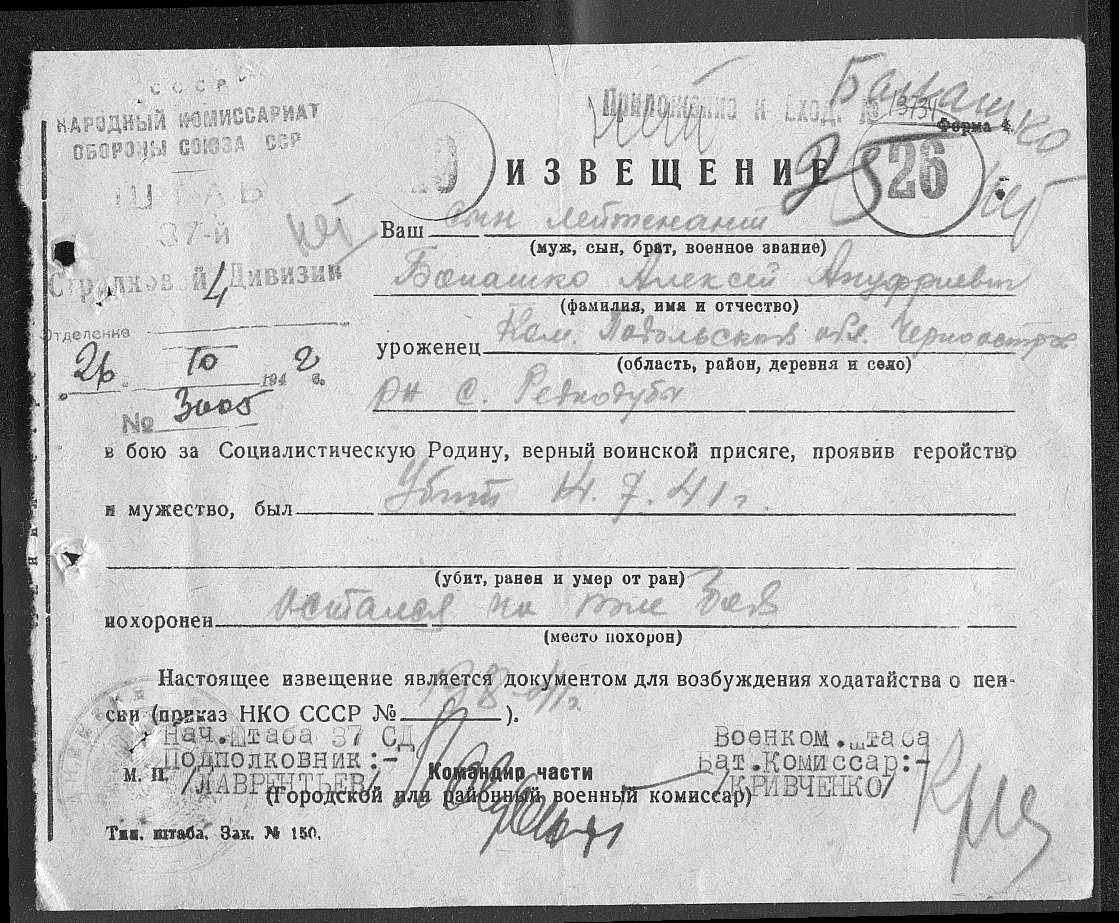 СССР
НАРОДНЫЙ КОМИССАРИАТ
ОБОРОНЫ СОЮЗА ССР
ШТАБ
37-й
Стрелковой Дивизии
Отделение 4
26 10 1942 г.
№ 3005
Приложение к Вход. №
Банашко
Форма 4.
26
ИЗВЕЩЕНИЕ
Ваш сын лейтенант
(муж, сын, брат, военное звание)
Банашко Алексей Ануфриевич
(фамилия, имя и отчество)
уроженец Кам. Подольской обл. Черноостров
(область, район, деревня и село)
рн с. Редкодубы
в бою за Социалистическую Родину, верный воинской присяге, проявив геройство
и мужество, был Убит 14.7.41 г.
(убит, ранен и умер от ран)
похоронен остался на поле боя
(место похорон)
Настоящее извещение является документом для возбуждения ходатайства о пен-
сии (приказ НКО СССР № 138-41 г.).
Нач.Штаба 37 СД Военком.штаба
Подполковник:- Бат.Комиссар:-
М. П. /ЛАВРЕНТЬЕВ/ Командир части /КРИВЧЕНКО/
(Городской или районный военный комиссар)
Тип. штаба. Зак. № 150.